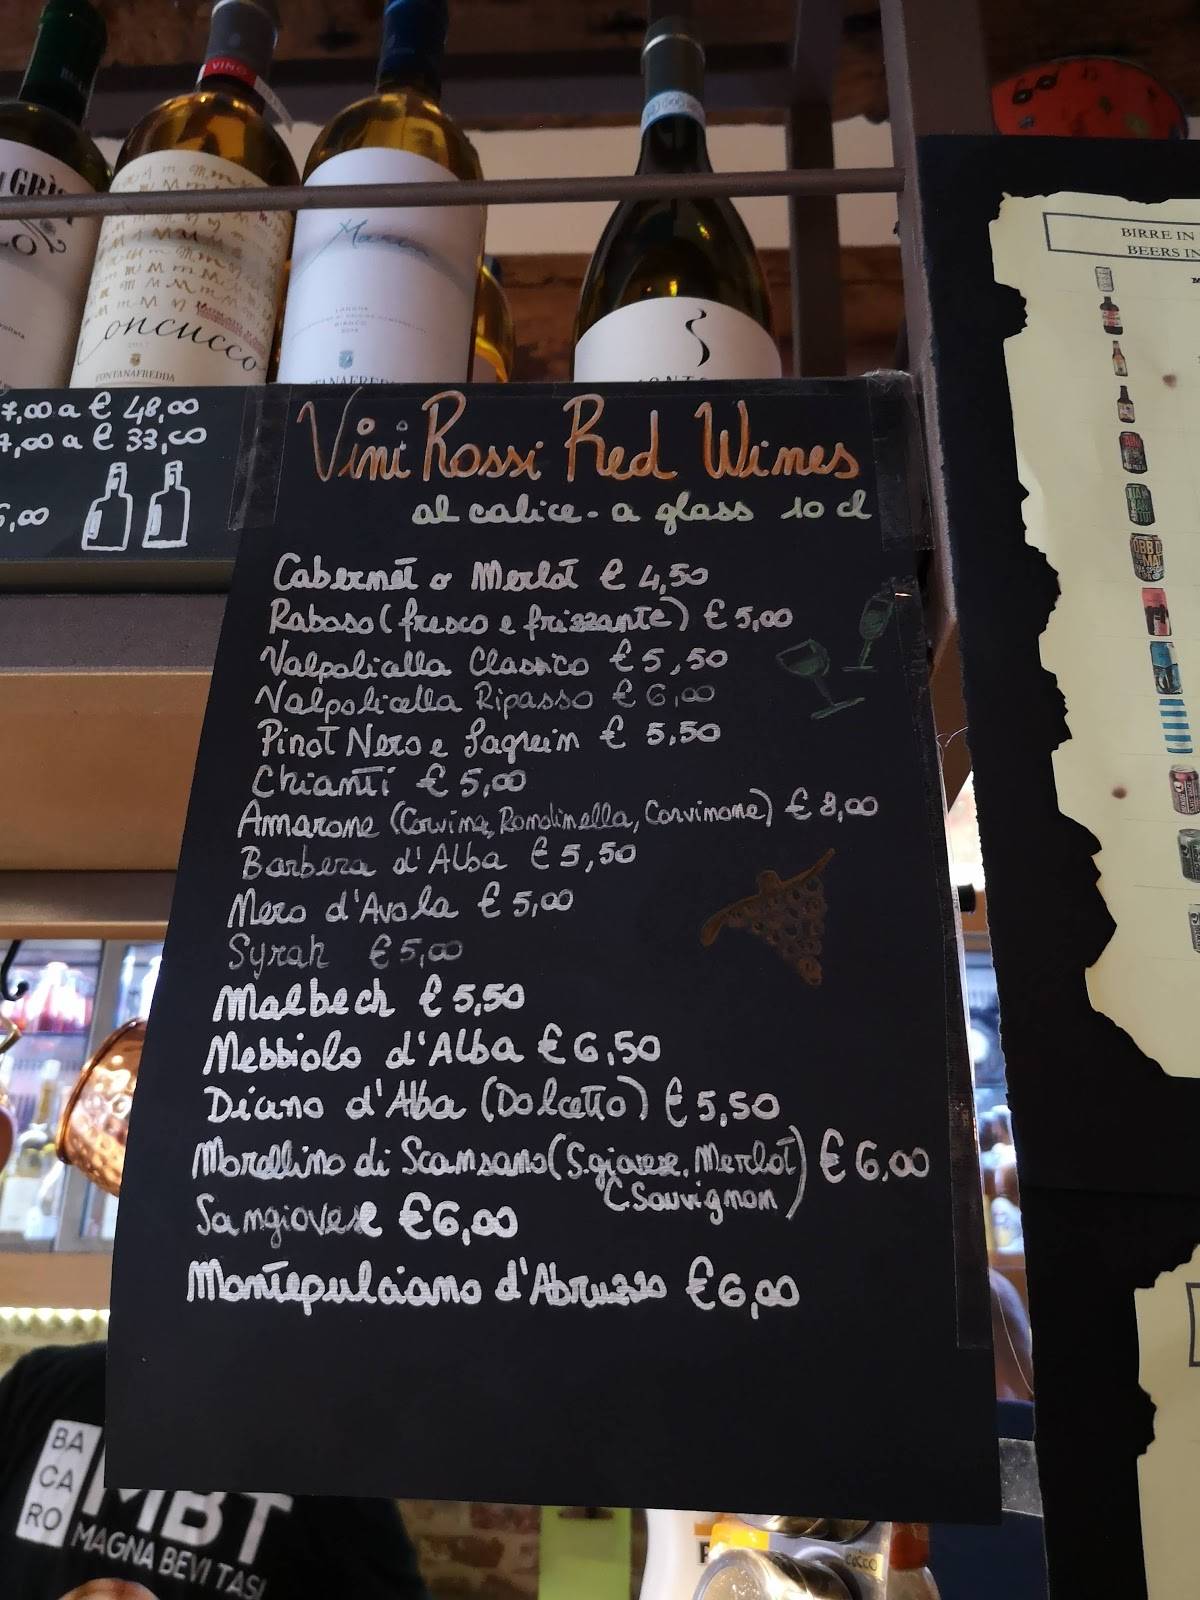 GRÌ
VINO
Concucco
FONTANAFREDDA
LANGHE
BIANCO
7,00 a € 48,00
7,00 a € 33,00
5,00
Vini Rossi Red Wines
al calice - a glass 10 cl
Cabernet o Merlot € 4,50
Raboso (fresco e frizzante) € 5,00
Valpolicella Classico € 5,50
Valpolicella Ripasso € 6,00
Pinot Nero e Lagrein € 5,50
Chianti € 5,00
Amarone (Corvina, Rondinella, Corvinone) € 8,00
Barbera d'Alba € 5,50
Nero d'Avola € 5,00
Syrah € 5,00
Malbech € 5,50
Nebbiolo d'Alba € 6,50
Diano d'Alba (Dolcetto) € 5,50
Morellino di Scansano (S.giovese, Merlot) € 6,00
C. Sauvignon
Sangiovese € 6,00
Montepulciano d'Abruzzo € 6,00
BIRRE IN
BEERS IN
BA
CA
RO
MBT
MAGNA BEVI TASI
COCCO